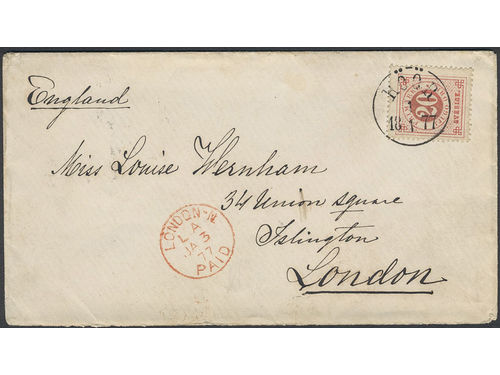 England
Miss Louise Wernham
34 Union square
Islington
London
LONDON·N
LA
JA 3
77
PAID
20
SVERIGE.
1877